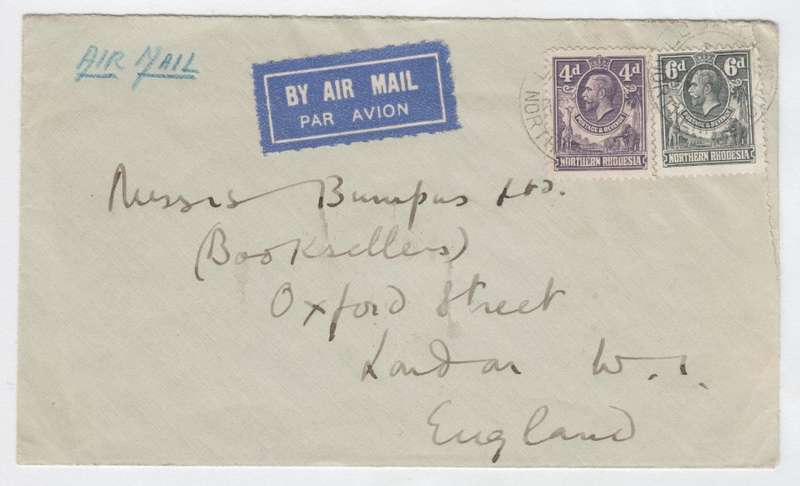 AIR MAIL
BY AIR MAIL
PAR AVION
4d 4d
POSTAGE & REVENUE
NORTHERN RHODESIA
6d 6d
POSTAGE & REVENUE
NORTHERN RHODESIA
Messrs Bumpus Ltd.
(Booksellers)
Oxford Street
London W.1.
England